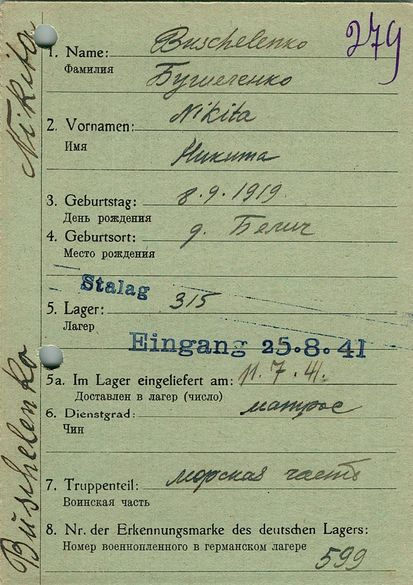 279
Buschelenko Nikita
1. Name: Buschelenko
Фамилия Бушеленко
2. Vornamen: Nikita
Имя Никита
3. Geburtstag: 8.9.1919.
День рождения
4. Geburtsort: д. Белич
Место рождения
Stalag
5. Lager: 315
Лагер
Eingang 25.8.41
5a. Im Lager eingeliefert am: 11.7.41.
Доставлен в лагер (число)
6. Dienstgrad: матрос
Чин
7. Truppenteil: морская часть
Воинская часть
8. Nr. der Erkennungsmarke des deutschen Lagers:
Номер военнопленного в германском лагере
599